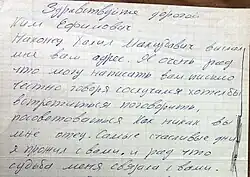 Здравствуйте дорогой
Ким Ефимович
Наконец Галия Макшудавич выслал
мне вам адрес. Я очень рад
что могу написать вам письмо
честно говоря соскучился хотел бы
встретиться поговорить
рассоветоваться Как никак вы
мне отец. Самые счасливые дни
я прожил с вами, и рад что
судьба меня связала с вами.